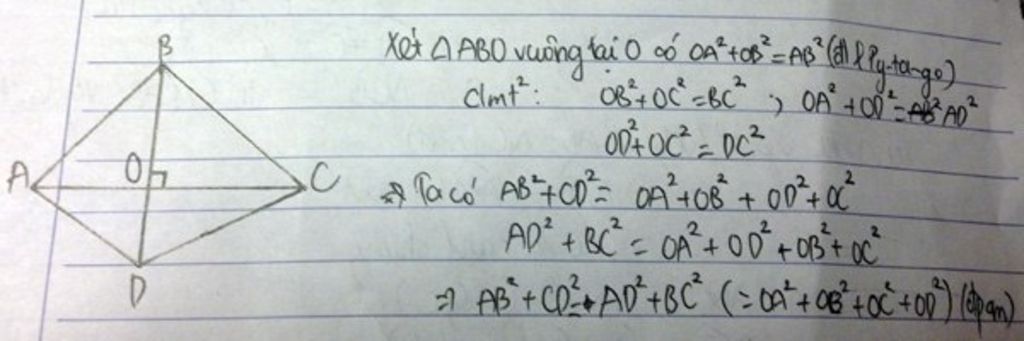 B
A
O
C
D
Xét △ ABO vuông tại O có OA²+OB²=AB² (đl Py-ta-go)
Clmt²: OB²+OC²=BC² ; OA²+OD²=AD²
OD²+OC²=DC²
=> Ta có AB²+CD²= OA²+OB²+OD²+OC²
AD²+BC²= OA²+OD²+OB²+OC²
=> AB²+CD²=AD²+BC² (=OA²+OB²+OC²+OD²) (đpcm)